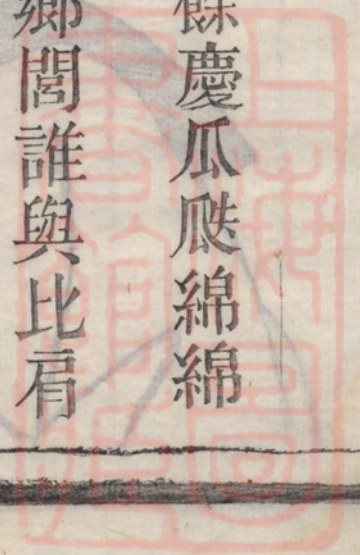 餘慶瓜瓞綿綿
鄉閭誰與比肩